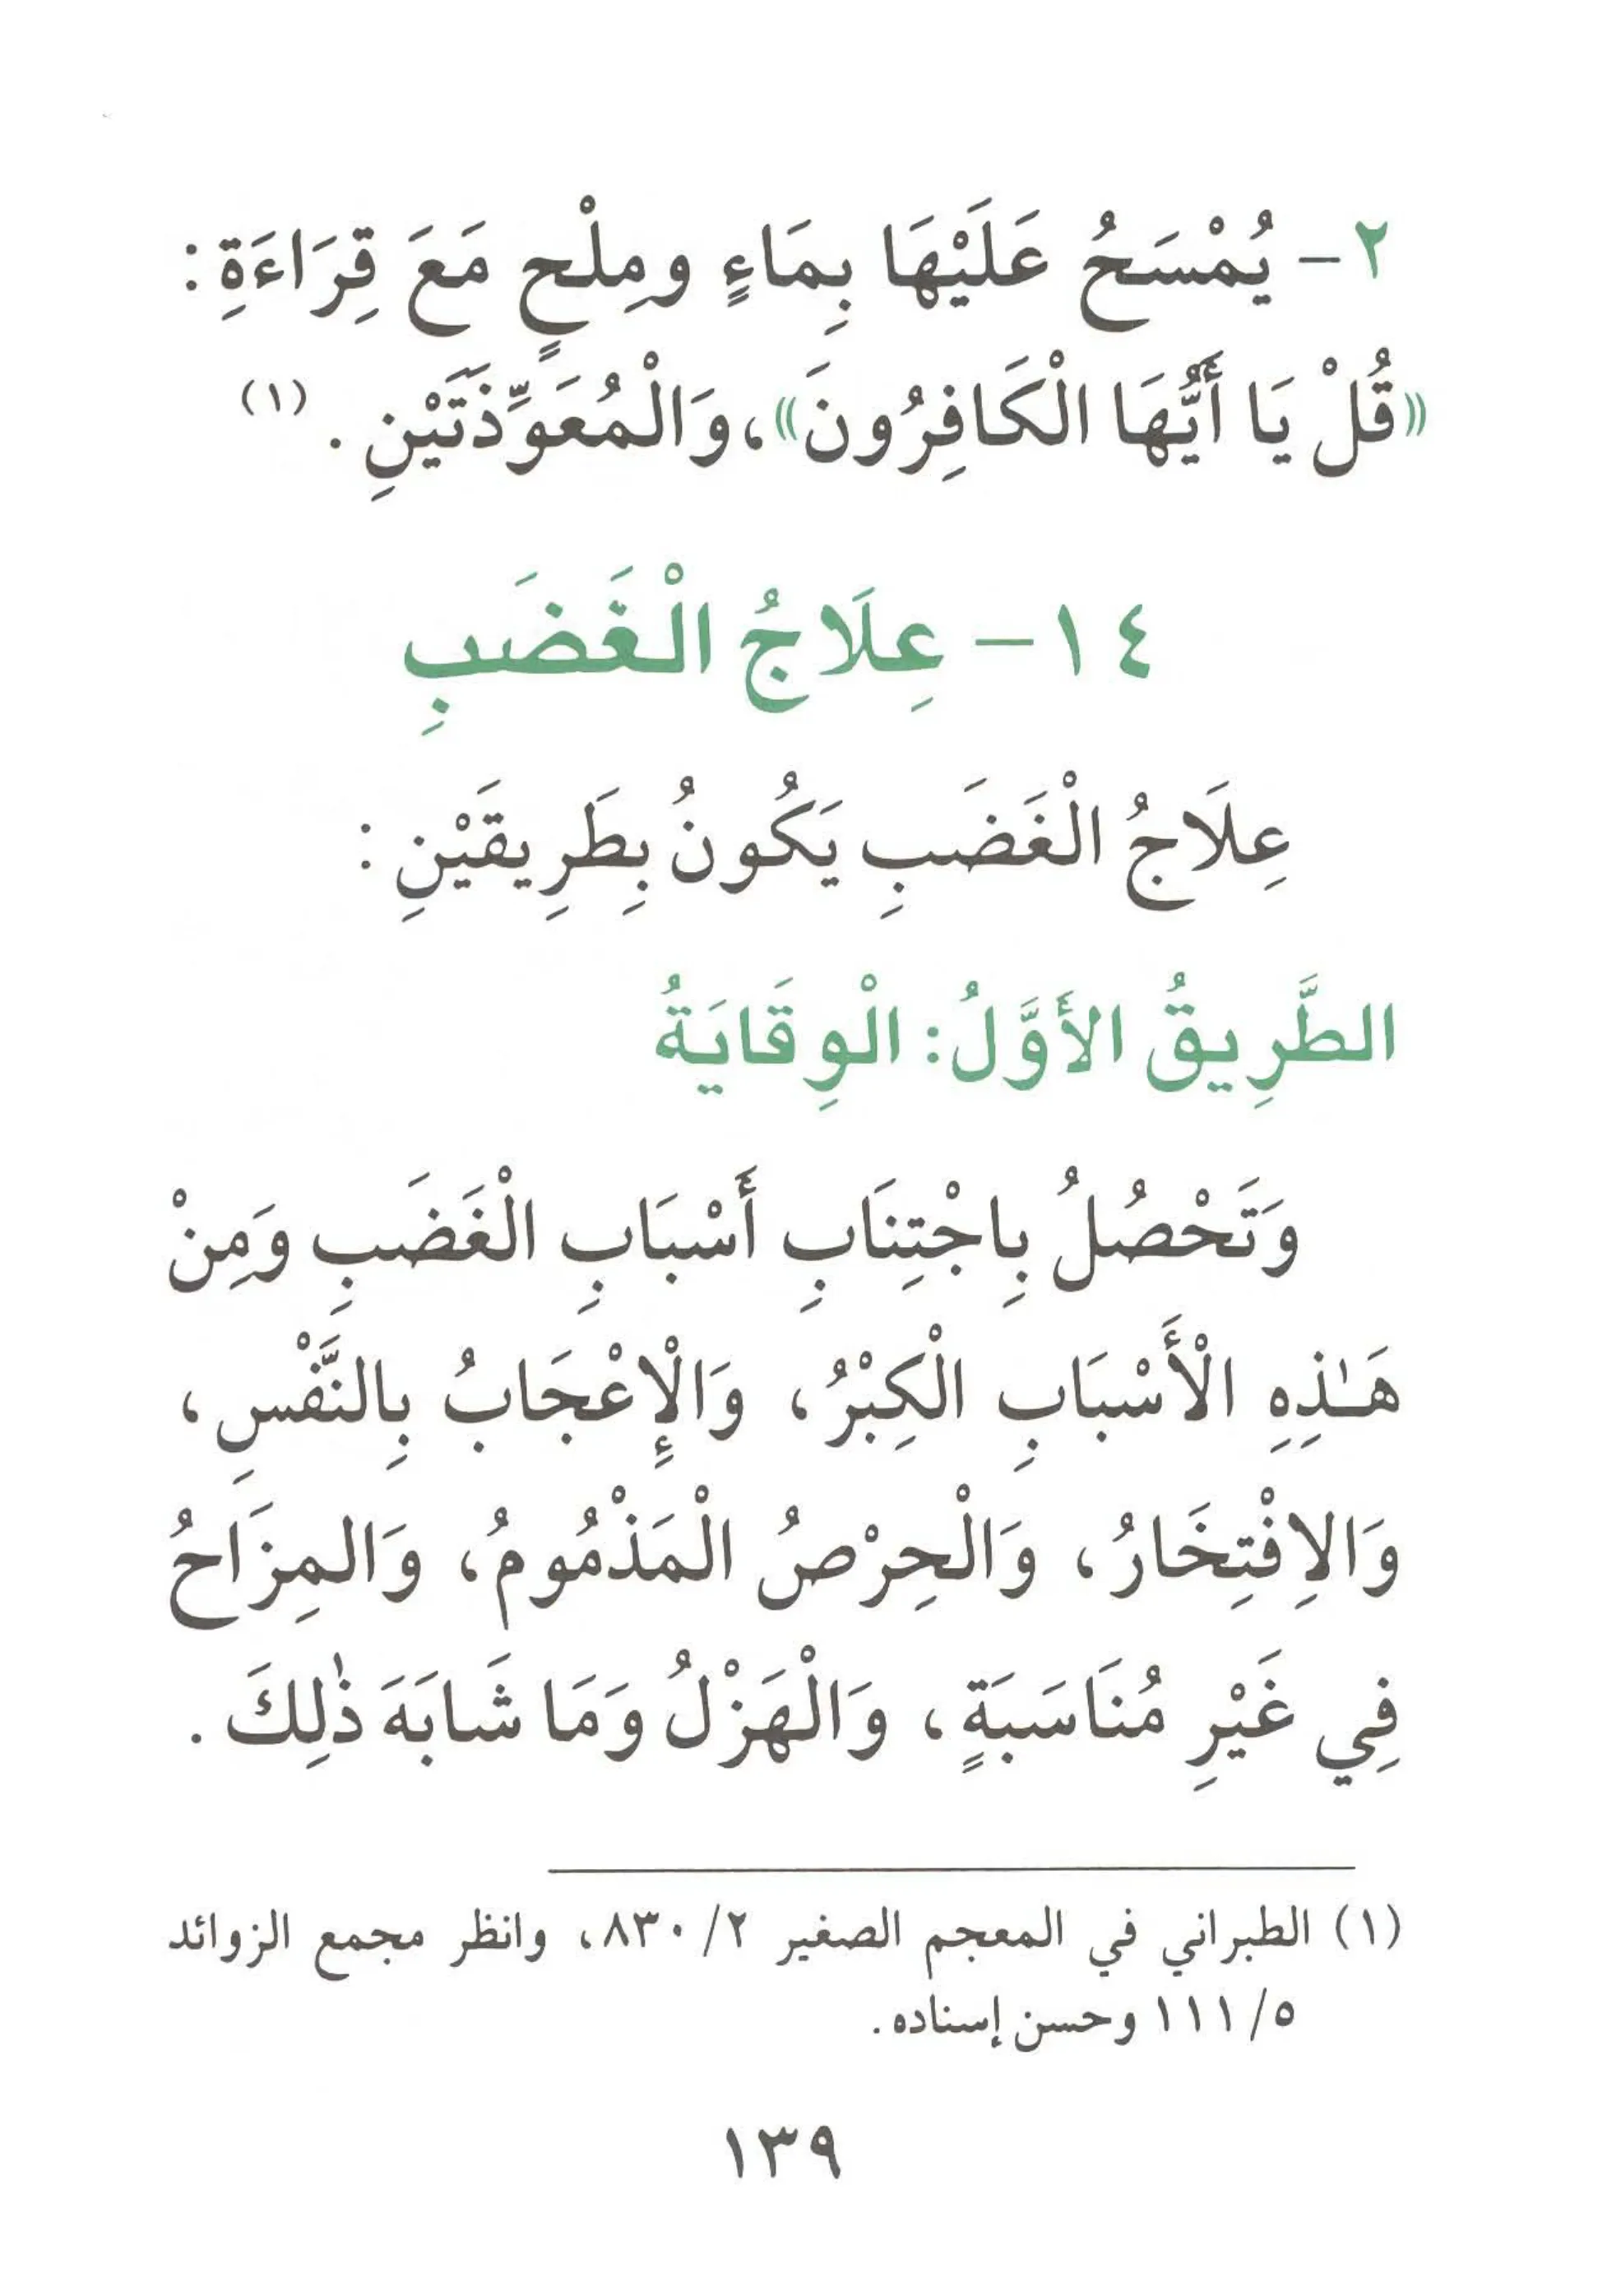 ٢ - يُمْسَحُ عَلَيْهَا بِمَاءٍ ومِلْحٍ مَعَ قِرَاءَةِ :
«قُلْ يَا أَيُّهَا الْكَافِرُونَ»، وَالْمُعَوِّذَتَيْنِ . (١)
١٤ - عِلَاجُ الْغَضَبِ
عِلَاجُ الْغَضَبِ يَكُونُ بِطَرِيقَيْنِ :
الطَّرِيقُ الأَوَّلُ: الْوِقَايَةُ
وَتَحْصُلُ بِاجْتِنَابِ أَسْبَابِ الْغَضَبِ وَمِنْ
هَـٰذِهِ الْأَسْبَابِ الْكِبْرُ، وَالْإِعْجَابُ بِالنَّفْسِ،
وَالِافْتِخَارُ، وَالْحِرْصُ الْمَذْمُومُ، وَالمِزَاحُ
فِي غَيْرِ مُنَاسَبَةٍ، وَالْهَزْلُ وَمَا شَابَهَ ذٰلِكَ .
(١) الطبراني في المعجم الصغير ٢/ ٨٣٠، وانظر مجمع الزوائد
٥/ ١١١ وحسن إسناده .
١٣٩